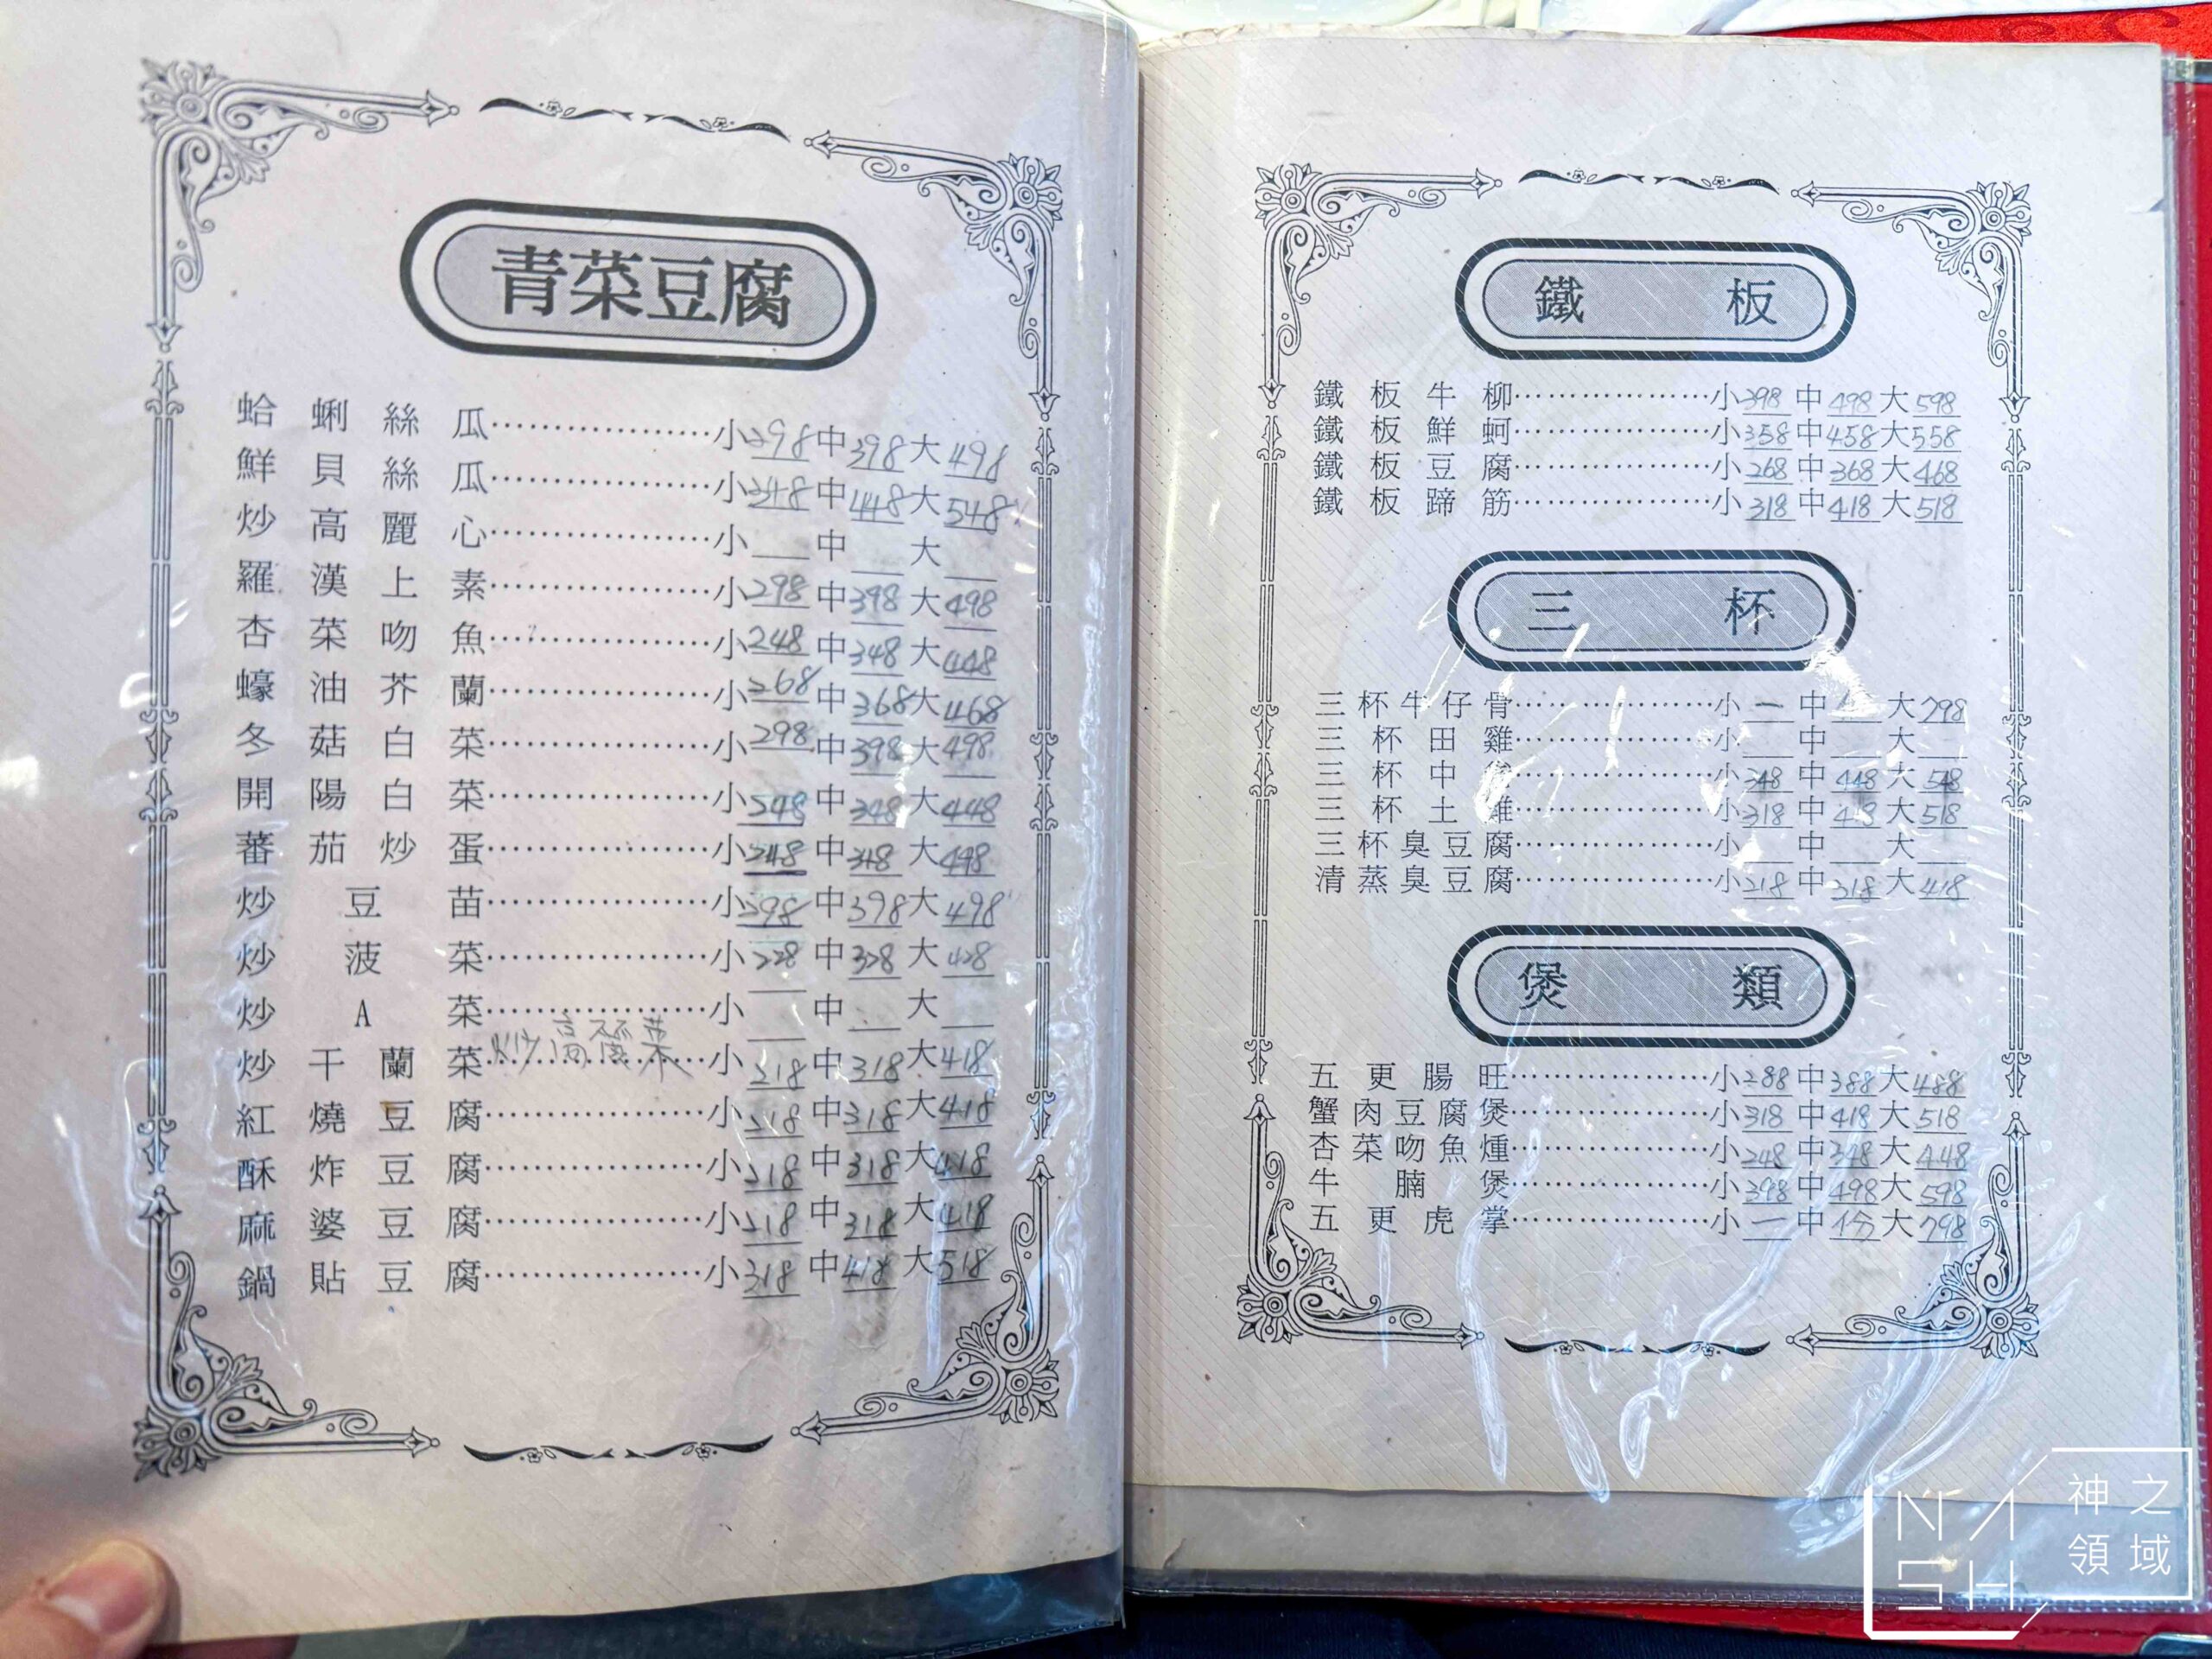 青菜豆腐
蛤蜊絲瓜………………小298中398大498
鮮貝絲瓜………………小348中448大548
炒高麗心………………小__中__大__
羅漢上素………………小298中398大498
杏菜吻魚………………小248中348大448
蠔油芥蘭………………小268中368大468
冬菇白菜………………小298中398大498
開陽白菜………………小248中348大448
蕃茄炒蛋………………小248中348大
炒豆苗………………小298中398大498
炒菠菜………………小228中328大428
炒A菜………………小__中__大__
炒高麗菜
炒干蘭菜………………小218中318大418
紅燒豆腐………………小218中318大418
酥炸豆腐………………小218中318大418
麻婆豆腐………………小218中318大418
鍋貼豆腐………………小318中418大518
鐵板
鐵板牛柳………………小398中498大598
鐵板鮮蚵………………小358中458大558
鐵板豆腐………………小268中368大468
鐵板蹄筋………………小318中418大518
三杯
三杯牛仔骨………………小一中 大798
三杯田雞………………小__中__大__
三杯中………………小348中448大548
三杯土雞………………小318中418大518
三杯臭豆腐………………小__中__大__
清蒸臭豆腐………………小218中318大418
煲類
五更腸旺………………小288中388大488
蟹肉豆腐煲………………小318中418大518
杏菜吻魚煄………………小248中348大448
牛腩煲………………小398中498大598
五更虎掌………………小一中 大798
NASH
神之
領域